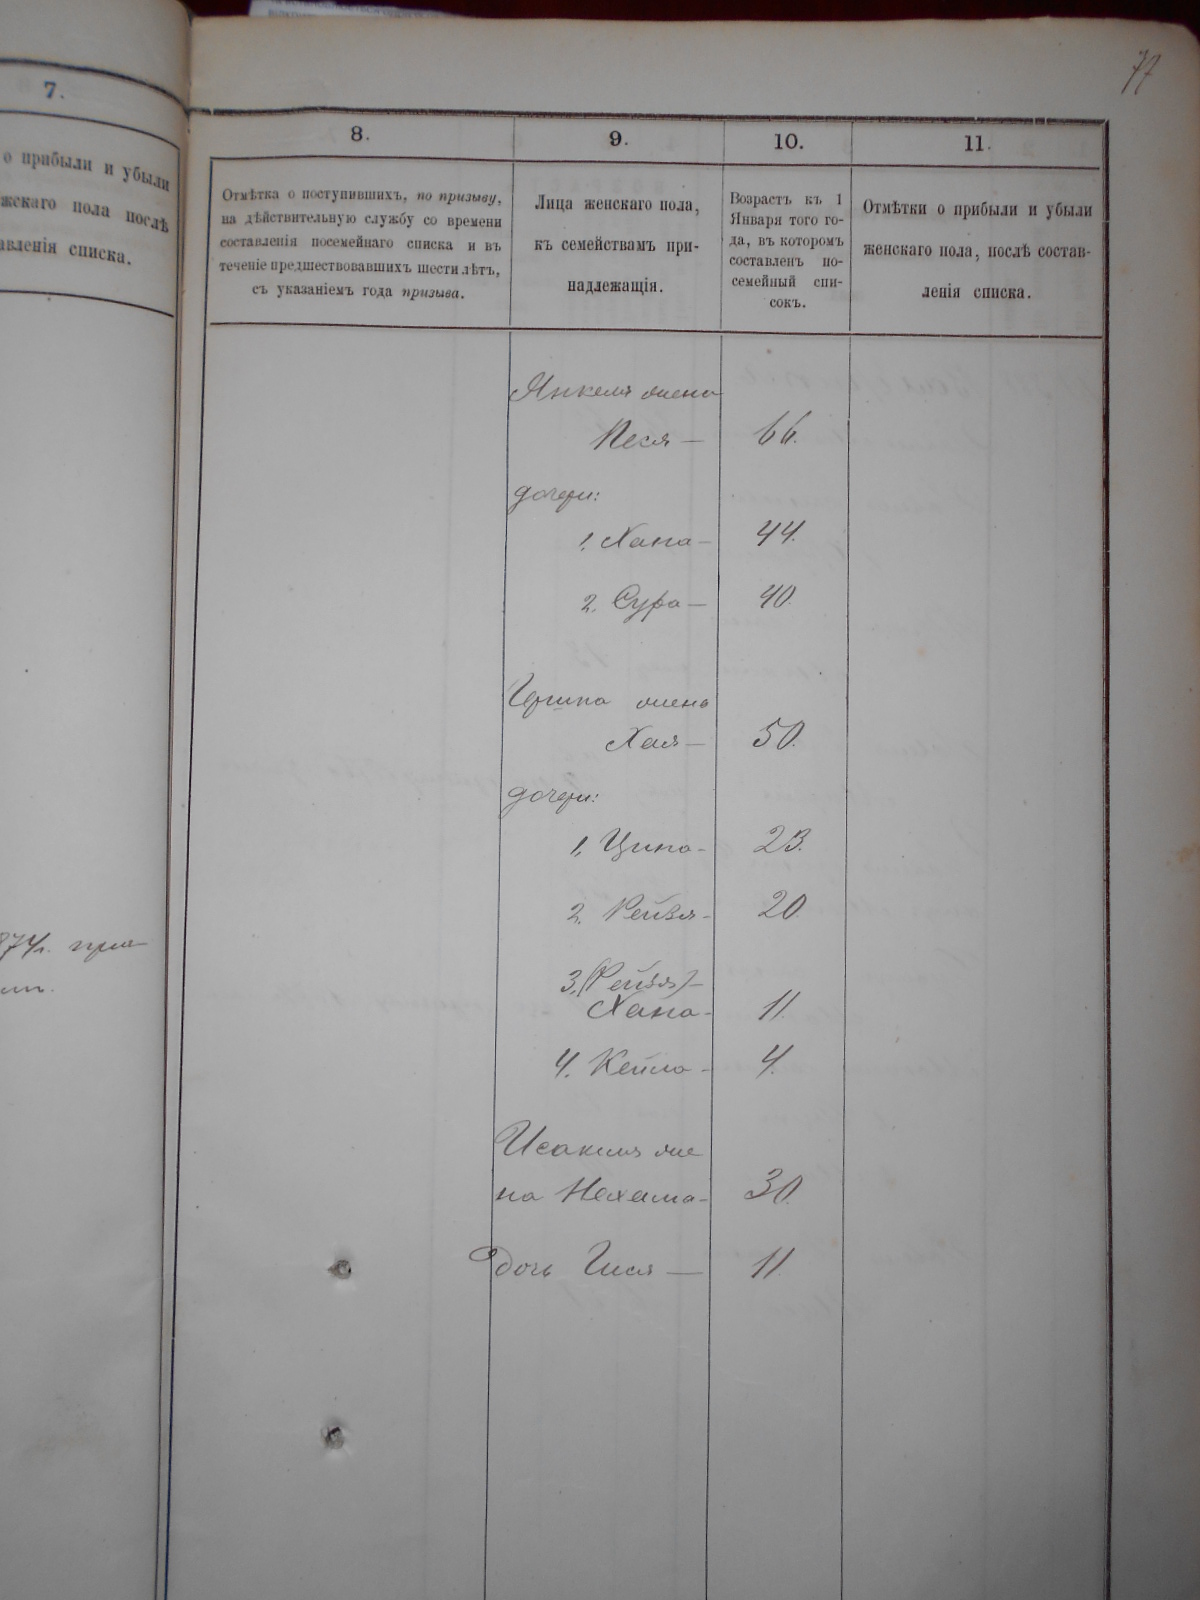 77
7.
о прибыли и убыли
жскаго пола послѣ
авленія списка.
874г. при
8.
9.
10.
11.
Отмѣтка о поступившихъ, по призыву,
на дѣйствительную службу со времени
составленія посемейнаго списка и въ
теченіе предшествовавшихъ шести лѣтъ,
съ указаніемъ года призыва.
Лица женскаго пола,
къ семействамъ при-
надлежащія.
Возрастъ къ 1
Января того го-
да, въ которомъ
составленъ по-
семейный спи-
сокъ.
Отмѣтки о прибыли и убыли
женскаго пола, послѣ состав-
ленія списка.
Янкеля жена
Песя — 66.
дочери:
1. Хана — 44.
2. Сура — 40.
Гершка жена
Хая — 50.
дочери:
1. Ципа - 23.
2. Рейзя - 20.
3. (Рейзя) -
Хана - 11.
4. Кейла - 4.
Исакима же
на Нехама - 30.
дочь Гися — 11.